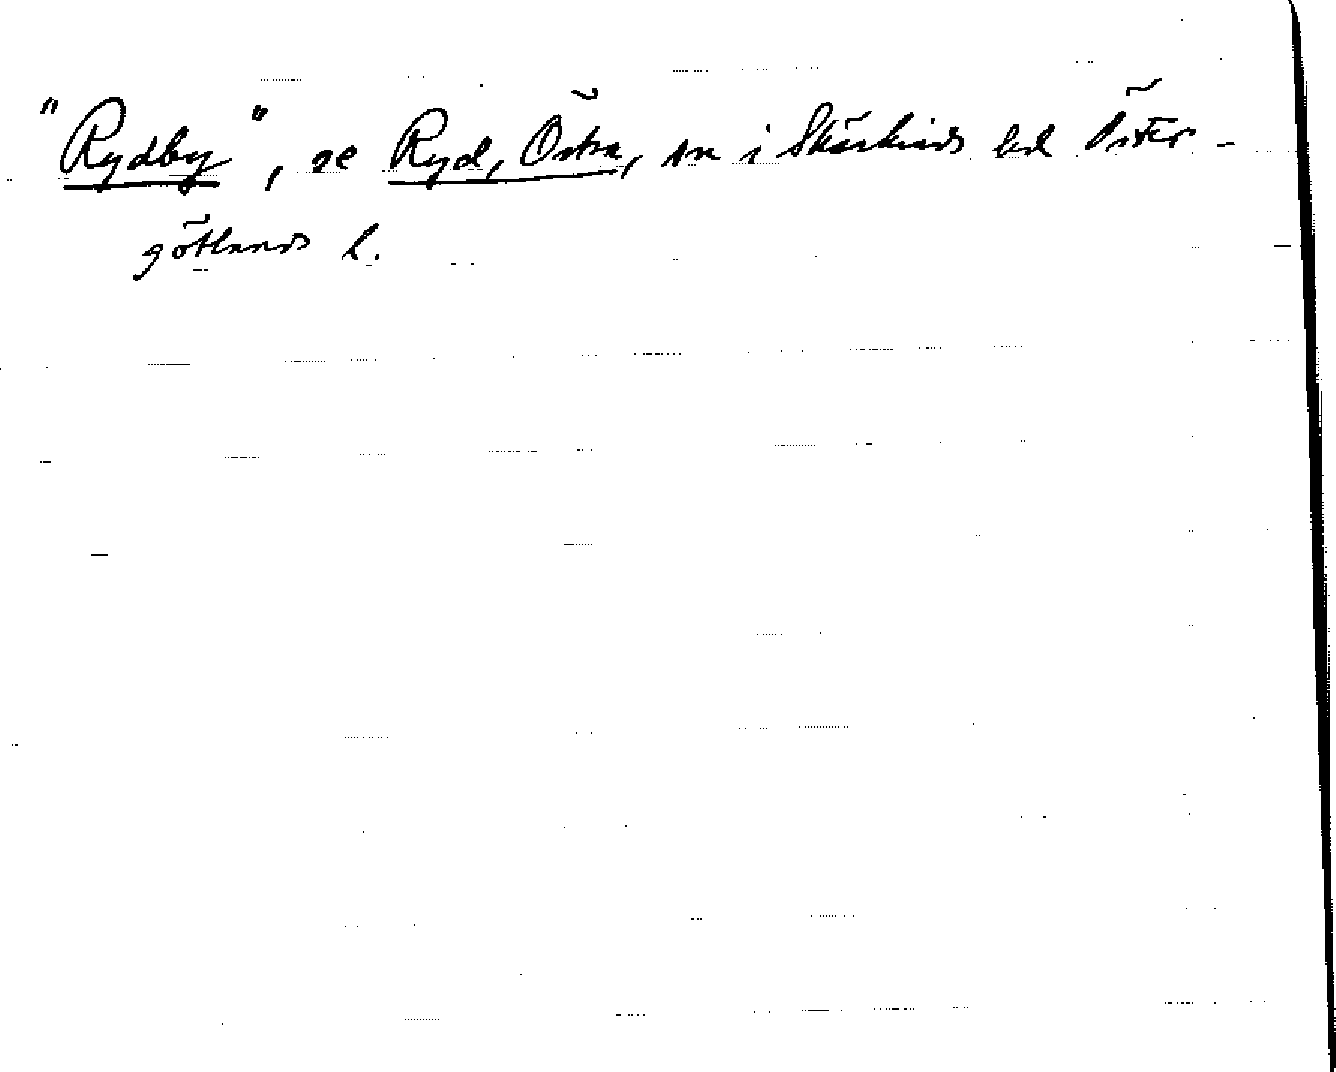 "Rydby", se Ryd, Östra, sn i Skärkinds hd Öster-
götlands l.